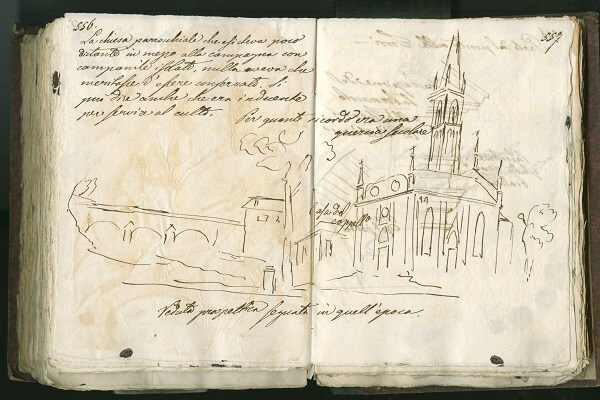 556.
La chiesa parrocchiale che esisteva poco
distante in mezzo alla campagna con
campanile isolato, nulla aveva che
meritasse d'essere osservato. Si
può dire anche che era indecente
per servire al culto.
Per quanto ricordo era una
quercia secolare
557.
Casa del
cappell.º
Veduta prospettica segnata in quell'epoca.